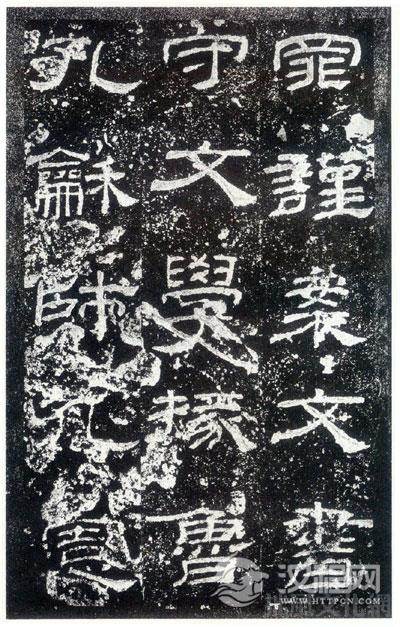 罪謹案文書
守文學掾魯
孔龢師孔憲
汉程网
WWW.HTTPCN.COM